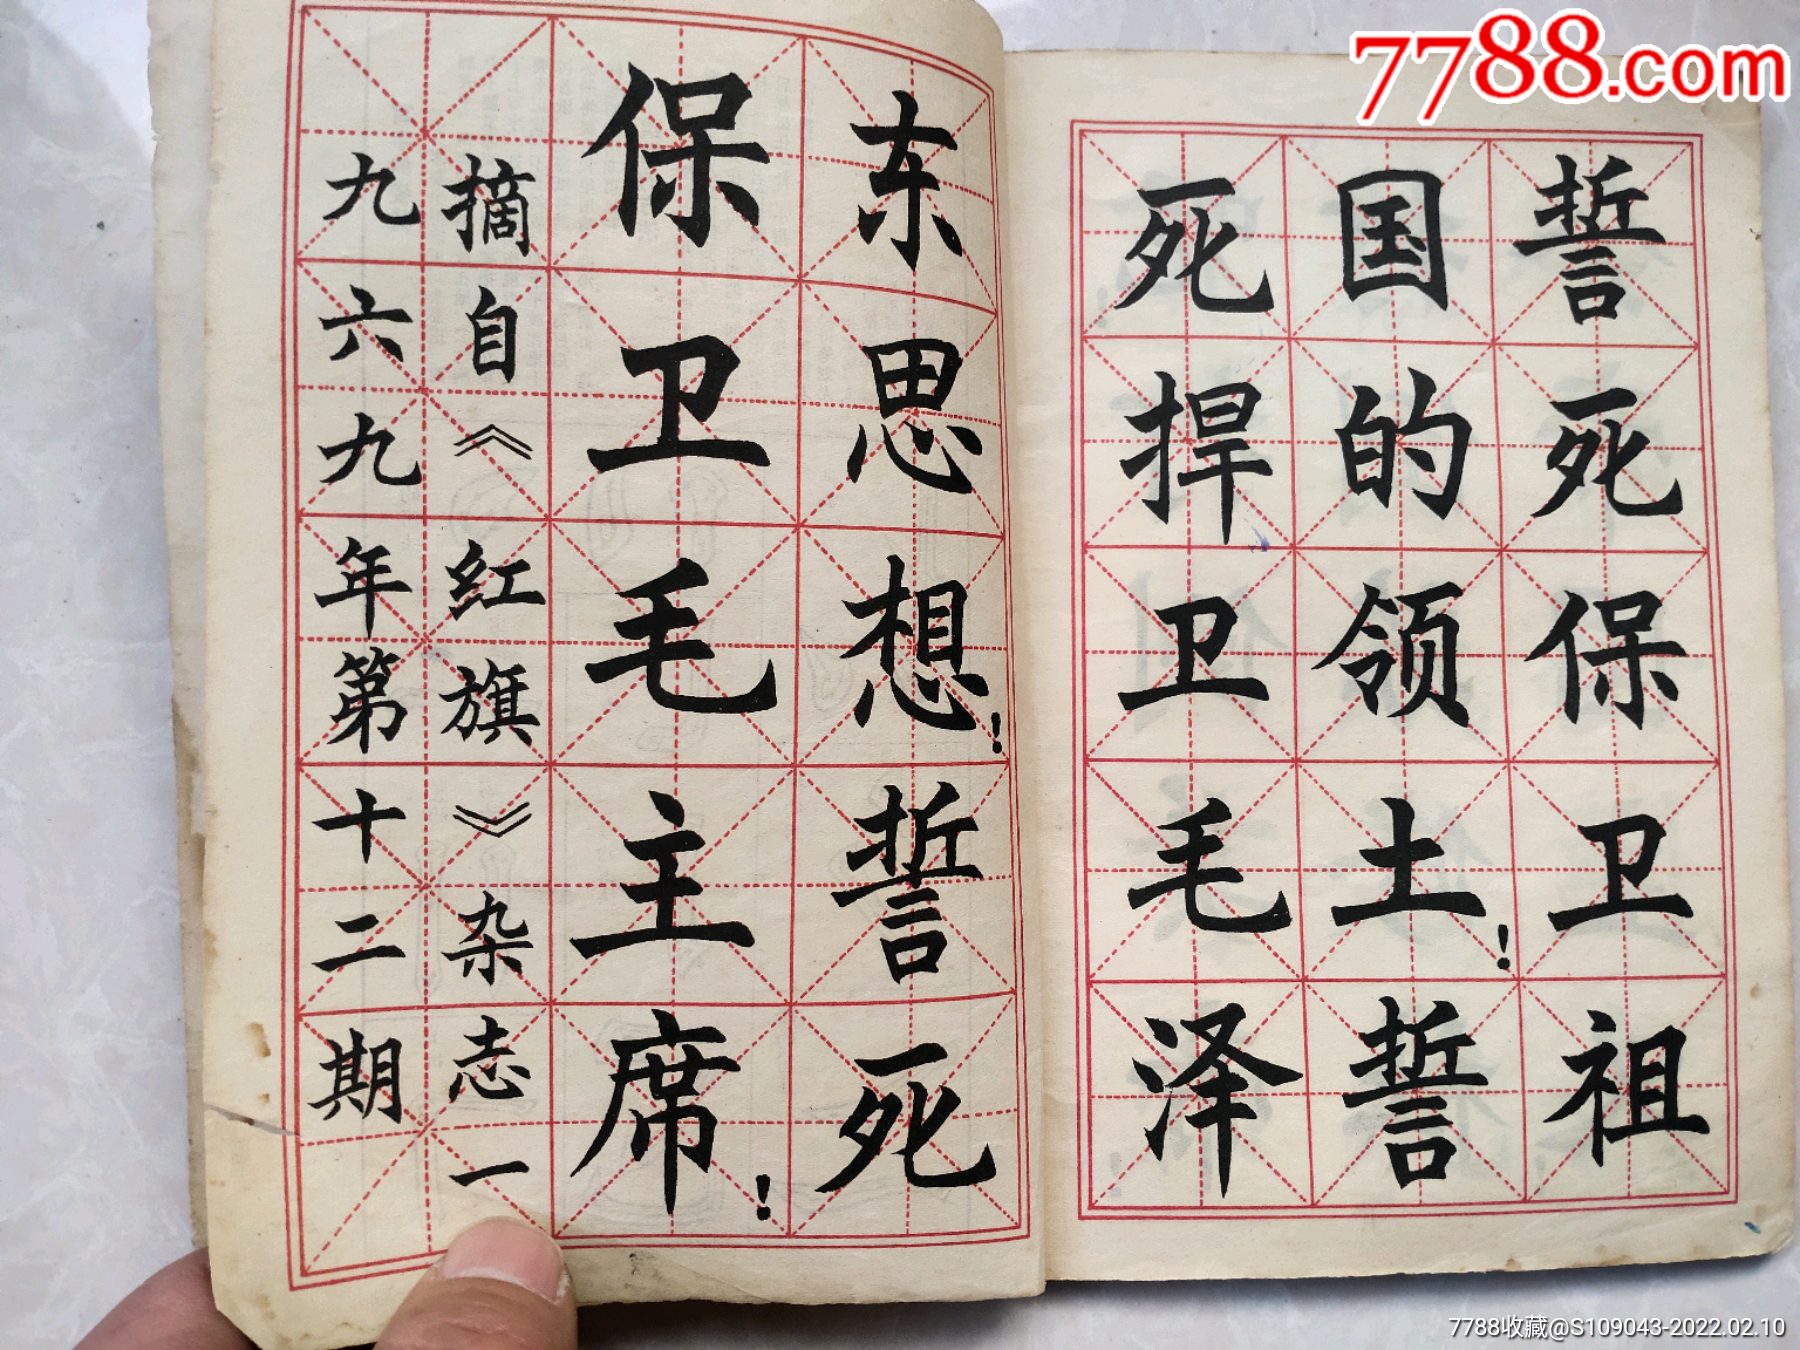 誓死保卫祖
国的领土！誓
死捍卫毛泽
东思想！誓死
保卫毛主席！
摘自《红旗》杂志一
九六九年第十二期
7788.com
7788收藏@S109043-2022.02.10